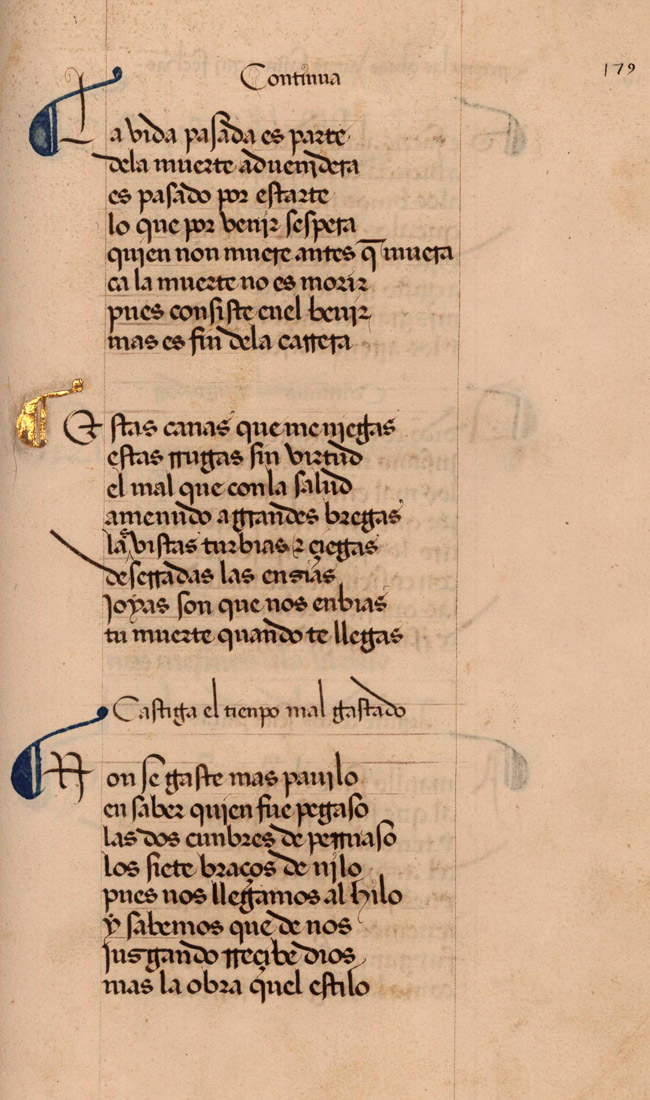 179
Continua
La vida pasada es parte
dela muerte aduenidera
es pasado por estarte
lo que por venir sespera
quien non muere antes q̄ muera
ca la muerte no es morir
pues consiste enel benir
mas es fin dela carrera
Estas canas que me niegas
estas rrugas sin virtud
el mal que conla salud
amenudo a grrandes bregas
la vistas turbias ⁊ çiegas
deserradas las ensias
joyas son que nos enbias
tu muerte quando te llegas
Castiga el tienpo mal gastado
Non se gaste mas pauilo
en saber quien fue pegaso
las dos cunbres de pernaso
los siete braços de nilo
pues nos llegamos al hilo
y sabemos que de nos
jusgando rreçibe dios
mas la obra quel estilo